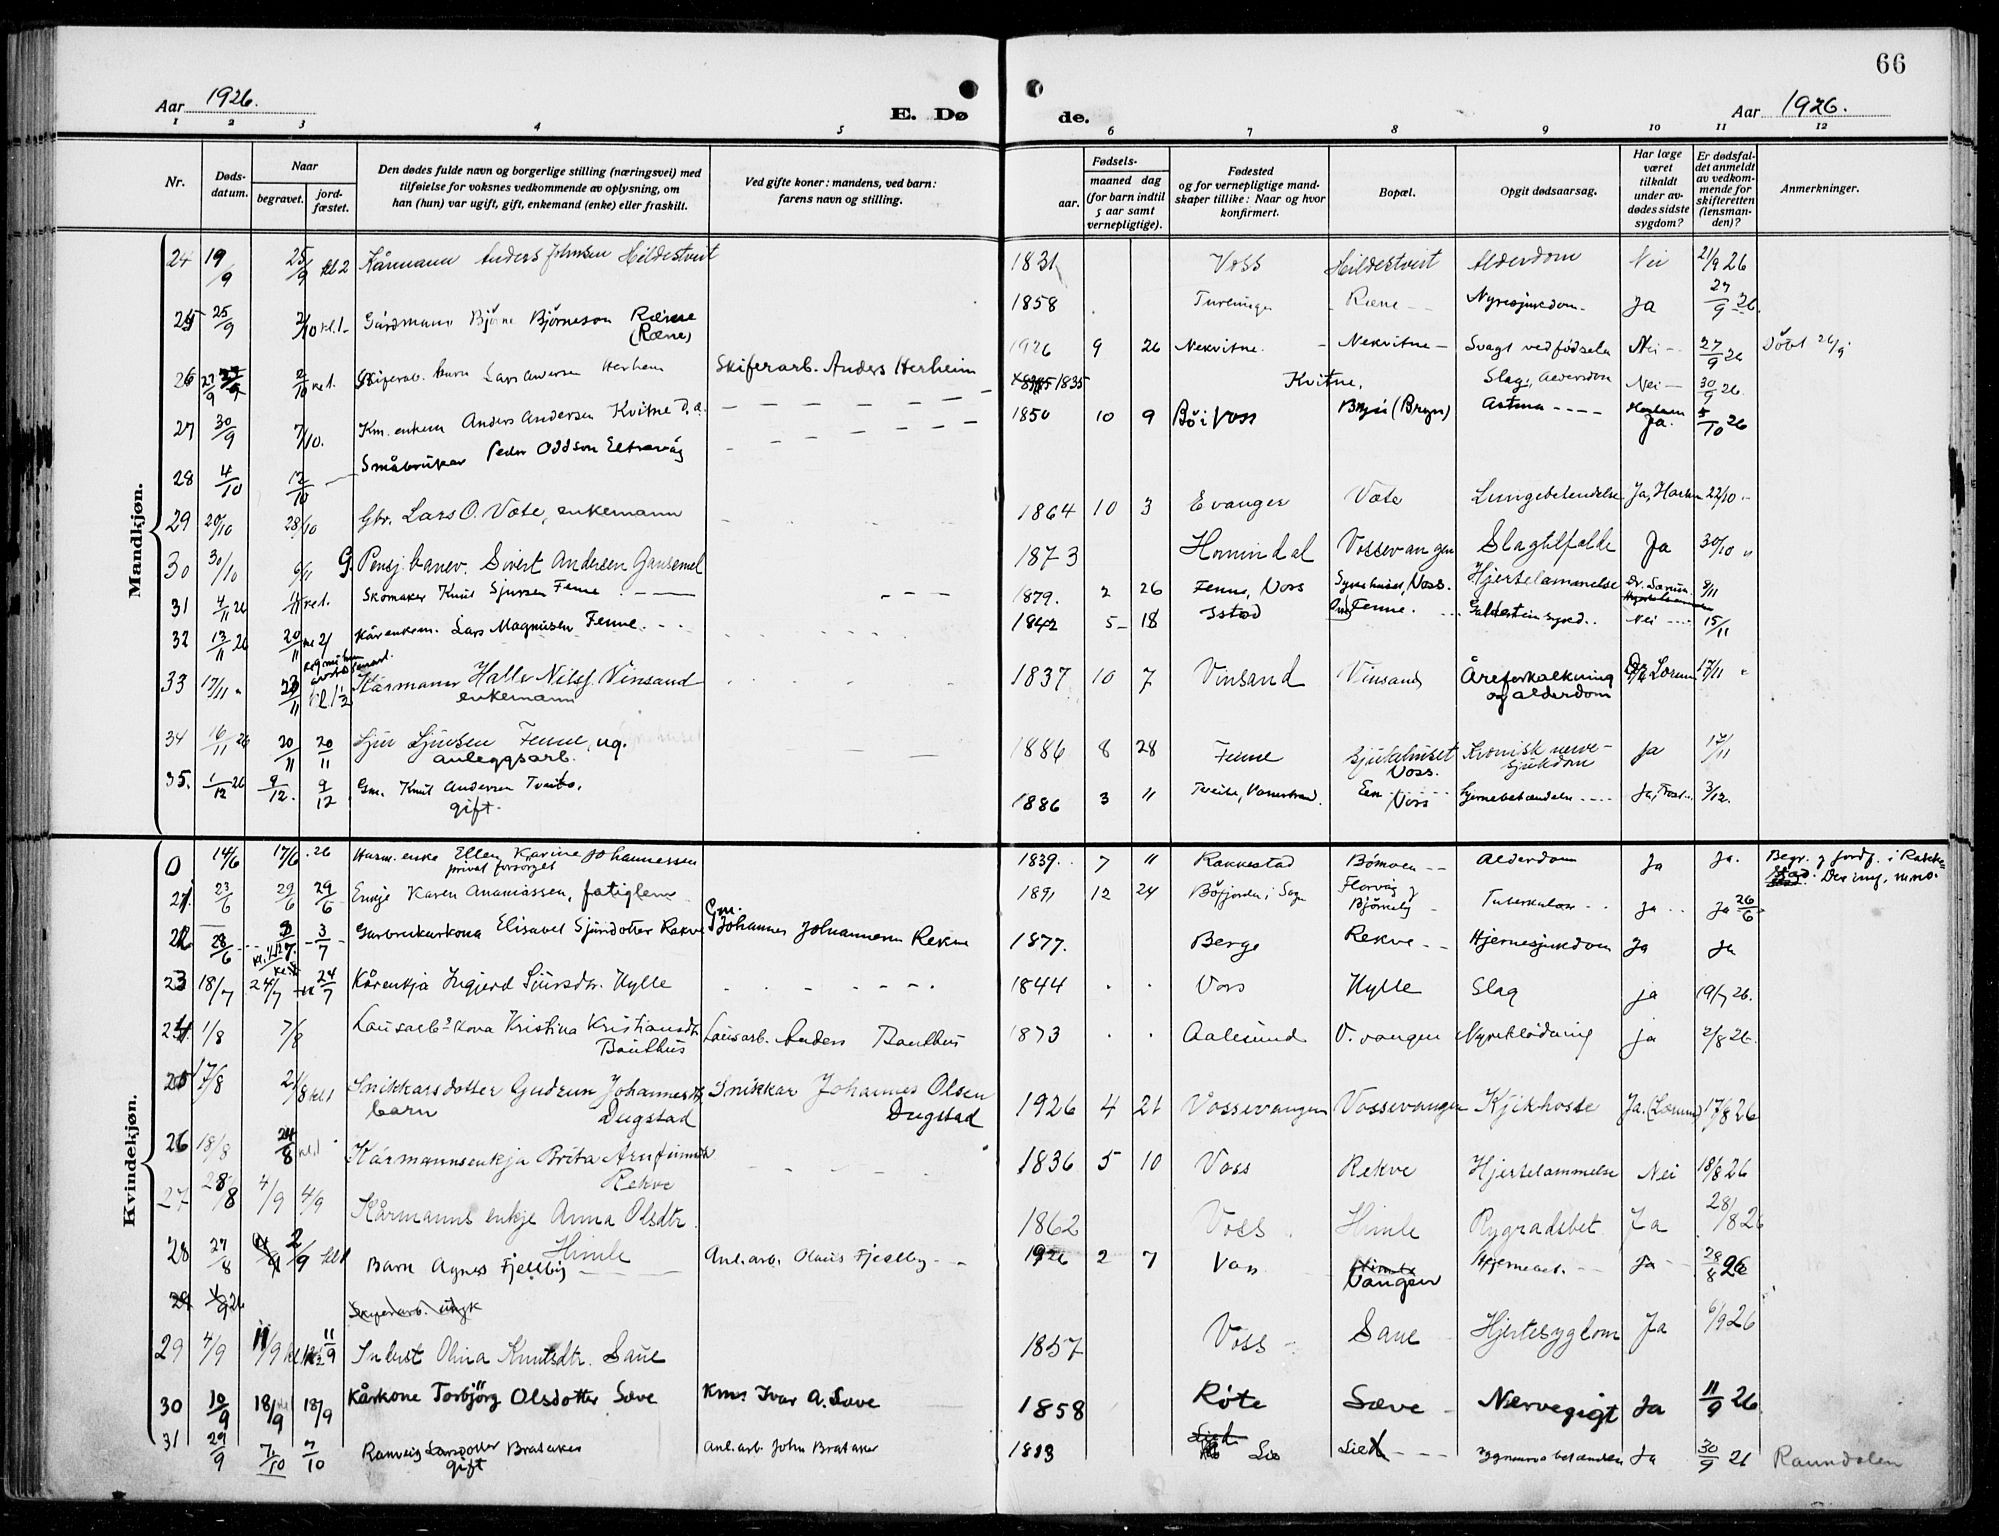 66
Aar 1926.
E. Dø
de.
Aar 1926.
1 2 3 4 5 6 7 8 9 10 11 12
Nr.
Døds-
datum.
Naar
begravet.
jord-
fæstet.
Den dødes fulde navn og borgerlige stilling (næringsvei) med
tilføielse for voksnes vedkommende av oplysning, om
han (hun) var ugift, gift, enkemand (enke) eller fraskilt.
Ved gifte koner: mandens, ved barn:
farens navn og stilling.
Fødsels-
aar. maaned dag
(for barn indtil
5 aar samt
vernepligtige).
Fødested
og for vernepligtige mand-
skaper tillike: Naar og hvor
konfirmert.
Bopæl.
Opgit dødsaarsag.
Har læge
været
tilkaldt
under av-
dødes sidste
sygdom?
Er dødsfal-
det anmeldt
av vedkom-
mende for
skifteretten
(lensman-
den)?
Anmerkninger.
Mandkjøn.
24 19/9 25/9 kl 2 Kårmann Anders Johnsen Hildestveit 1831 Voss Hildestveit Alderdom Nei 21/9 26
25 25/9 2/10 kl. 1 Gårdmann Bjørne Bjørneson Rærne 1858 Ræne Nyresjukdom Ja 27/9 26
(Ræne)
26 27/9 2/10 kl. 1 Skiferarb. barn Lars Andersen Herheim Skiferarb. Anders Herheim 1926 9 26 Nekvitne Nekvitne Svagt ved fødselen Nei 27/9 26 Døbt 26/9
27 30/9 7/10. Km. enkem Anders Andersen Kvitne d.a. 1835 Kvitne. Slag, Alderdom Nei 30/9 26
28 4/10 12/10 Småbruker Peder Oddson 1850 10 9 Bø i Voss (Bryn) Astma Ja. 5/10 26
29 20/10 28/10 Gbr. Lars O. Væte, enkemann 1864 10 3 Evanger Væte Lungebetendelse Ja, 22/10 "
30 30/10 6/11 Pensj. banev. Sivert Andersen Gausemel 1873 Hornindal Vossevangen Slagtilfælde Ja 30/10 "
31 4/11 26 kl. 1 Skomaker Knut Sjursen Fenne 1879. 2 26 Fenne, Voss Sykehuset, Voss. Hjertelammelse Dr. 8/11
32 13/11 26 20/11 Kårenkem. Lars Magnusen Fenne 1842 5 18 Istad Fenne. Nei 15/11
33 17/11 " 23/11 kl 1½ Kårmann Halle Nilsf. Vinsand 1837 10 7 Vinsand Vinsand Åreforkalkning 17/11 "
enkemann og alderdom
34 16/11 26 20/11 20/11 Sjur Sjursen Fenne, ug. 1886 8 28 Fenne Sjukehuset Kronisk nerve- Ja 17/11
anleggsarb. Voss. sjukdom
35. 1/12 26 9/12. 9/12 Gm. Knut Andersen Tveite. 1886 3 " Een Hjernebetændelse Ja, 3/12.
gift. Voss
Kvindekjøn.
0 14/6 17/6 .26 Husm. enke Ellen Karine Johannessen 1839. 7 " Rakkestad Bømoen Alderdom Ja Ja. Begr. og jordf. i Rakke-
privat forsørget stad.
21. 23/6 29/6 29/6 Enkje Karen Ananiassen, fatiglem 1891 12 24 Tuberkulose Ja Ja 26/6
22 28/6 3/7 Garbrukarkona Elisabet Sjursdotter Rekve Gm. Johannes Johannesen Rekve 1877. Berge Rekve Hjernesjukdom Ja Ja
23 18/7 24/7 24/7 Kårenkja Ingjerd Sjursdtr. Hylle 1844 Voss Hylle Slag Ja 19/7 26.
24 1/8 7/8 Lausarb. kona Kristina Kristiansdtr Lausarb. Anders Bauthus 1873 Aalesund V. vangen Nyreblødning Ja 2/8 26.
Bauthus
25 17/8 21/8 kl 1 Snikkarsdotter Gudrun Johannesdtr Snikkar Johannes Olsen 1926 4 21 Vossevangen Vossevangen Kjikhoste Ja. 17/8 26
barn Dugstad Dugstad
26 18/8 24/8 kl. 1 Kårmannsenkja Brita Arnfinnsdtr 1836 5 10 Voss Rekve Hjertelammelse Nei 18/8 26
Rekve
27 28/8 4/9 4/9 Kårmanns enkje Anna Olsdtr. 1862 Voss Himle Rygradsbet. Ja 28/8 26
Himle
28 27/8 2/9 kl 1 Barn Agnes Fjellby Anl. arb. Olaus Fjellby 1926 2 7 Voss Vangen Hjernebet. Ja 28/8 26
29 26 Skiferarb.
29 4/9 11/9 11/9 Olina Knutsdtr. Saue 1857 Voss Saue Hjertesygdom Ja 6/9 26
30 10/9 18/9 18/9 Kårkone Torbjörg Olsdotter Sæve Km. Ivar A. Sæve 1858 Røte Sæve Nervegigt Ja 11/9 26.
31 29/9 7/10 7/10 Ranveig Larsdotter Brataker Anl. arb. John Brataker Lie Lie Ja 30/9 26 Raundalen
gift